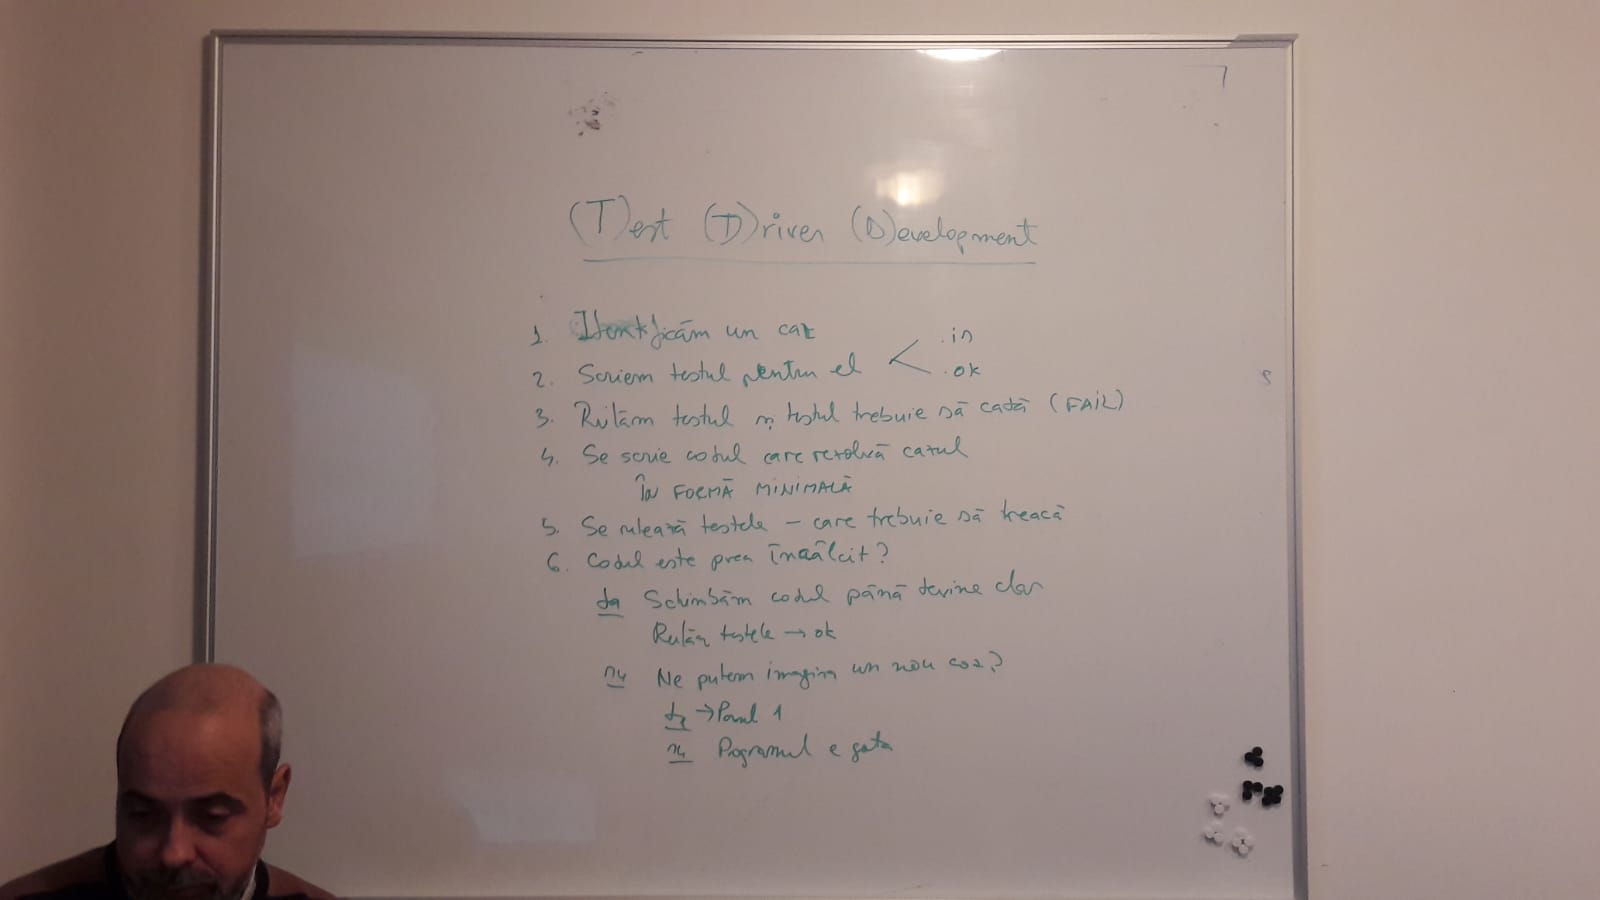 (T)est (D)riven (D)evelopment
1. Identificăm un caz
2. Scriem testul pentru el < .in .ok
3. Rulăm testul și testul trebuie să cadă (FAIL)
4. Se scrie codul care rezolvă cazul
În FORMĂ MINIMALĂ
5. Se rulează testele – care trebuie să treacă
6. Codul este prea încâlcit?
da Schimbăm codul până devine clar
Rulăm testele → ok
nu Ne putem imagina un nou caz?
da → Pasul 1
nu Programul e gata